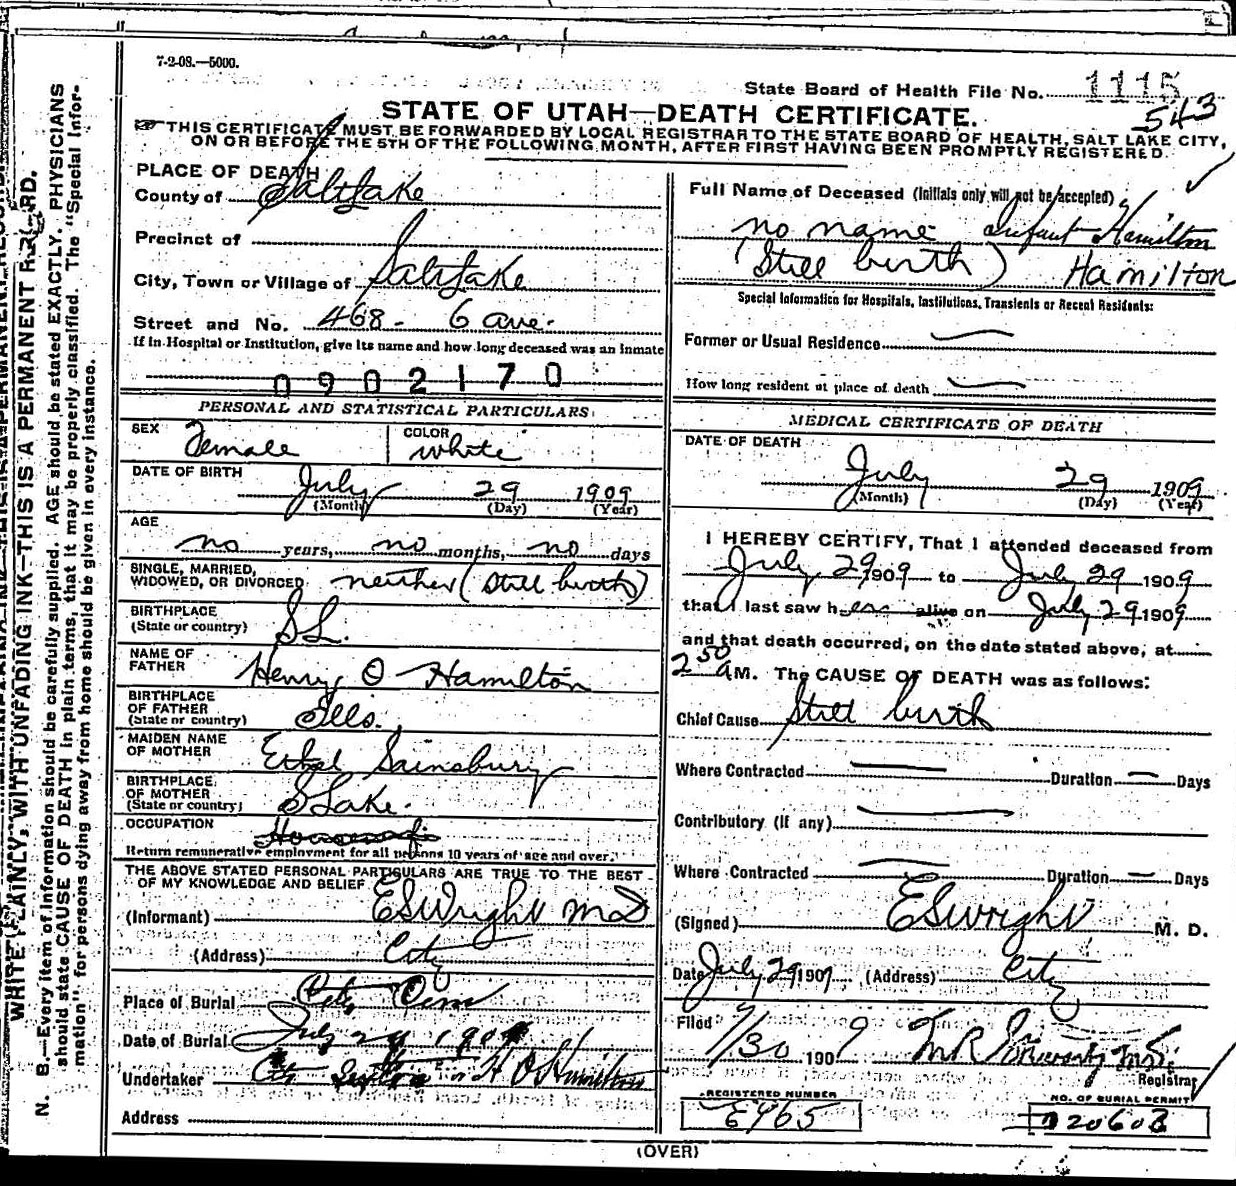 7-2-08.—5000.
State Board of Health File No. 1115
543
STATE OF UTAH—DEATH CERTIFICATE.
THIS CERTIFICATE MUST BE FORWARDED BY LOCAL REGISTRAR TO THE STATE BOARD OF HEALTH, SALT LAKE CITY,
ON OR BEFORE THE 5TH OF THE FOLLOWING MONTH, AFTER FIRST HAVING BEEN PROMPTLY REGISTERED.
PLACE OF DEATH
County of Salt Lake
Precinct of
City, Town or Village of Salt Lake
Street and No. 468 - 6 ave.
If in Hospital or Institution, give its name and how long deceased was an inmate
0902170
PERSONAL AND STATISTICAL PARTICULARS
SEX Female COLOR White
DATE OF BIRTH July 29 1909
(Month) (Day) (Year)
AGE
no years, no months, no days
SINGLE, MARRIED,
WIDOWED, OR DIVORCED neither (Still birth)
BIRTHPLACE
(State or country) S L.
NAME OF
FATHER Henry O Hamilton
BIRTHPLACE
OF FATHER
(State or country) Ills.
MAIDEN NAME
OF MOTHER Ethel Sainsbury
BIRTHPLACE
OF MOTHER
(State or country) S Lake.
OCCUPATION
Return remunerative employment for all persons 10 years of age and over.
THE ABOVE STATED PERSONAL PARTICULARS ARE TRUE TO THE BEST
OF MY KNOWLEDGE AND BELIEF
(Informant) E S Wright M D
(Address) City
Place of Burial City Cem
Date of Burial July 29 1909
Undertaker City Sexton H O Hamilton
Address
Full Name of Deceased (Initials only will not be accepted)
no name Infant Hamilton
(Still birth) Hamilton
Special Information for Hospitals, Institutions, Transients or Recent Residents:
Former or Usual Residence —
How long resident at place of death —
MEDICAL CERTIFICATE OF DEATH
DATE OF DEATH
July 29 1909
(Month) (Day) (Year)
I HEREBY CERTIFY, That I attended deceased from
July 29 1909 to July 29 1909
that I last saw her alive on July 29 1909
and that death occurred, on the date stated above, at
2 50 A M. The CAUSE OF DEATH was as follows:
Chief Cause Still birth
Where Contracted — Duration — Days
Contributory (if any) —
Where Contracted — Duration — Days
(Signed) E S Wright M. D.
Date July 29 1909 (Address) City
Filed 7/30 1909
Registrar
REGISTERED NUMBER
E465
NO. OF BURIAL PERMIT
(OVER)
WRITE PLAINLY, WITH UNFADING INK—THIS IS A PERMANENT RECORD.
N. B.—Every item of information should be carefully supplied. AGE should be stated EXACTLY. PHYSICIANS
should state CAUSE OF DEATH in plain terms, that it may be properly classified. The "Special Infor-
mation" for persons dying away from home should be given in every instance.